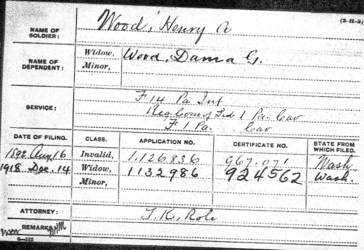 (3-11-3)
NAME OF SOLDIER: Wood, Henry A
NAME OF DEPENDENT: Widow, Wood, Dama G.
Minor,
SERVICE: F 14 Pa Inf
1 Pa. Cav
F 1 Pa. Cav
DATE OF FILING. CLASS. APPLICATION NO. CERTIFICATE NO. STATE FROM WHICH FILED.
1892 Aug 16 Invalid, 1,126,836 967,071 Wash.
1918 Dec. 14 Widow, 1132986 924562 Wash.
Minor,
ATTORNEY:
REMARKS: